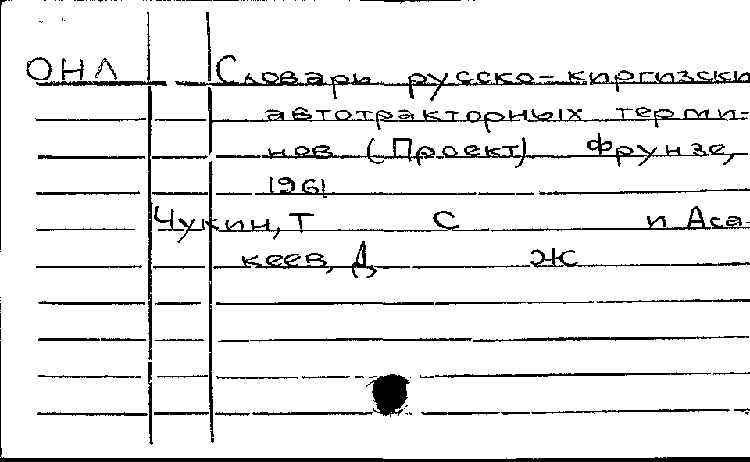 ОНЛ Словарь русско-киргизски
автотракторных терми-
нов (Проект) Фрунзе,
1961
Чукин, Т С и Аса-
кеев, Д Ж